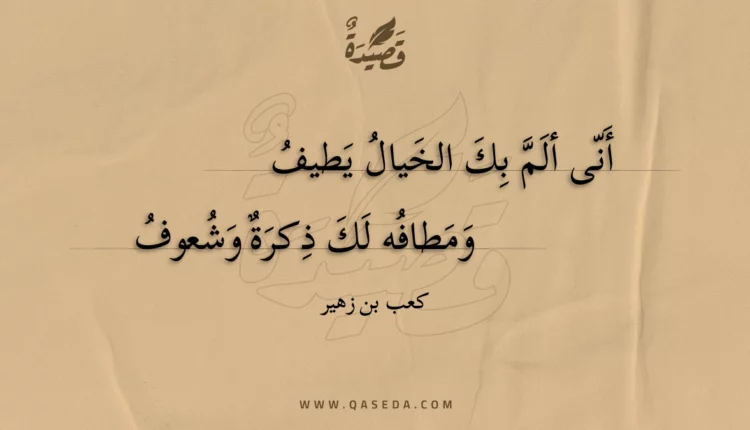 قَصِيْدَةٌ
أَنّى ألَمَّ بِكَ الخَيالُ يَطيفُ
وَمَطافُه لَكَ ذِكرَةٌ وَشُعوفُ
كعب بن زهير
WWW.QASEDA.COM